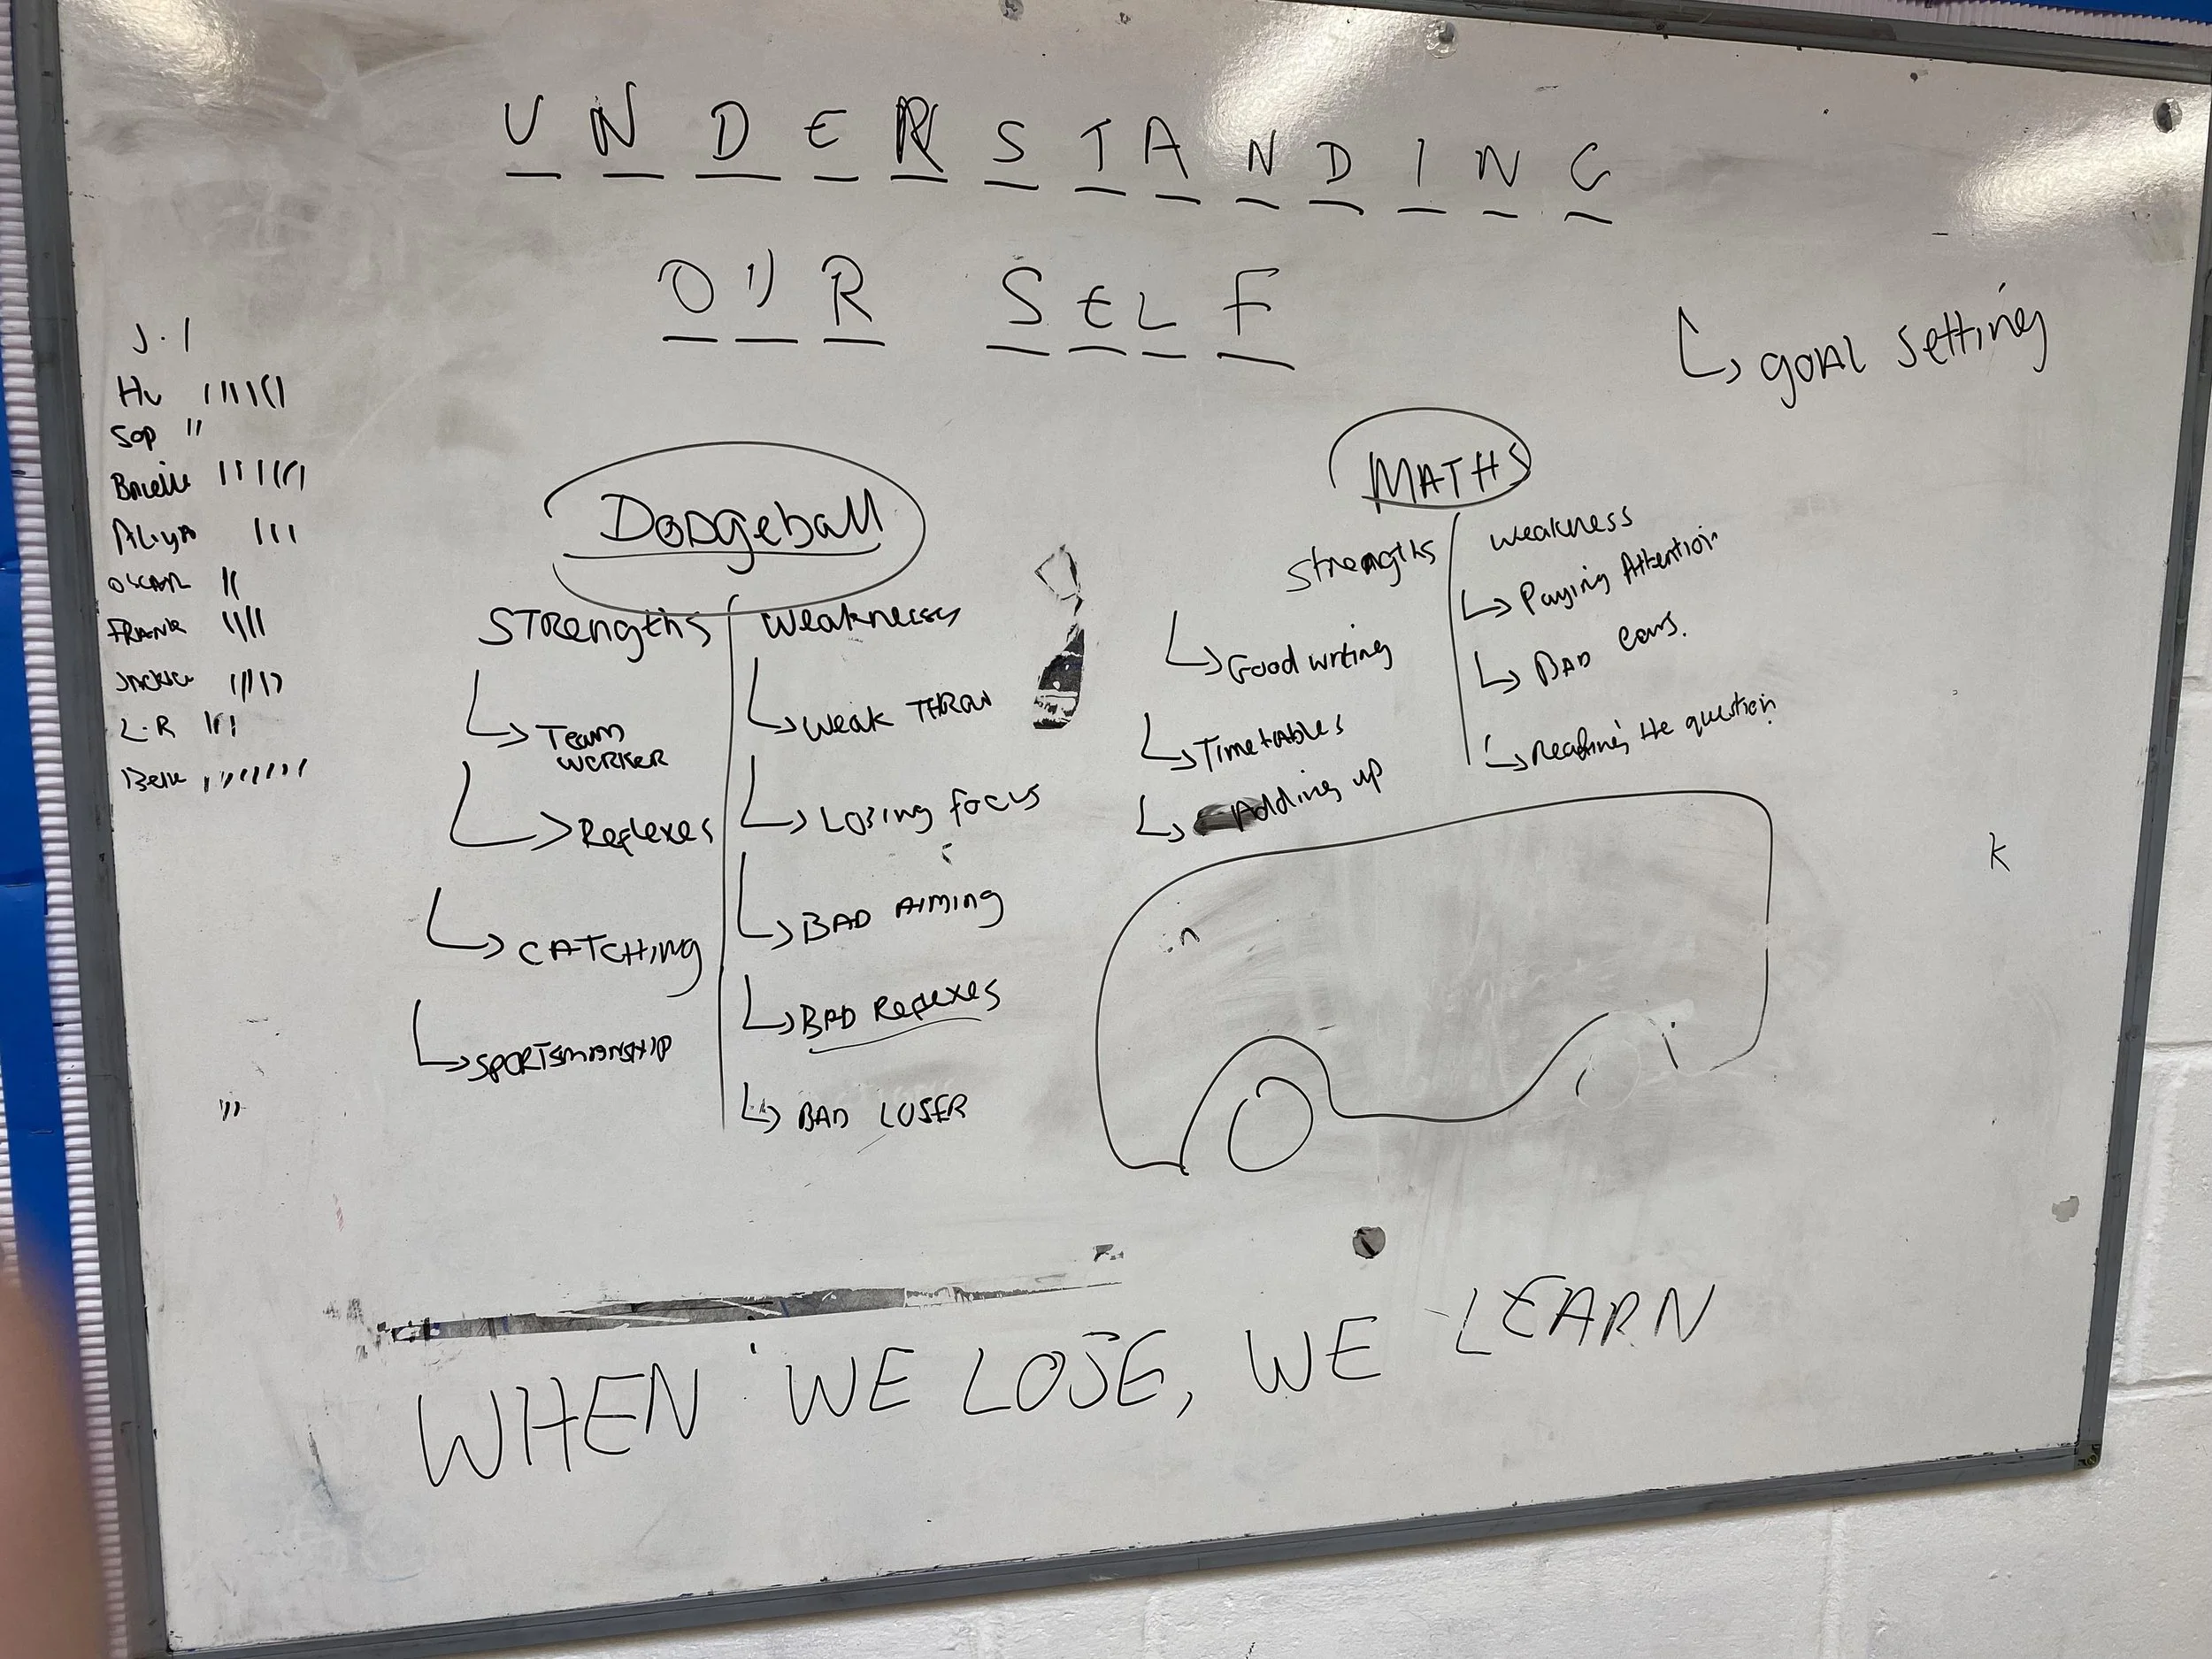 UNDERSTANDING
OUR SELF
↳ goal setting
J. I
Hu IIIIII
Sop II
IIIIII
Aliya III
OSCAR II
FRANK IIII
IIIII
L.R III
Dodgeball
STRengths
↳ Team
WORKER
↳ Reflexes
↳ CATCHing
↳ SPORTSmanSHIP
Weaknesses
↳ Weak THROW
↳ Losing focus
↳ BAD AIMING
↳ BAD Reflexes
↳ BAD LOSER
MATHS
Strengths
↳ Good writing
↳ Timetables
↳ Adding up
weakness
↳ Paying Attention
↳ BAD ears.
↳ Reading the question
k
WHEN WE LOSE, WE LEARN